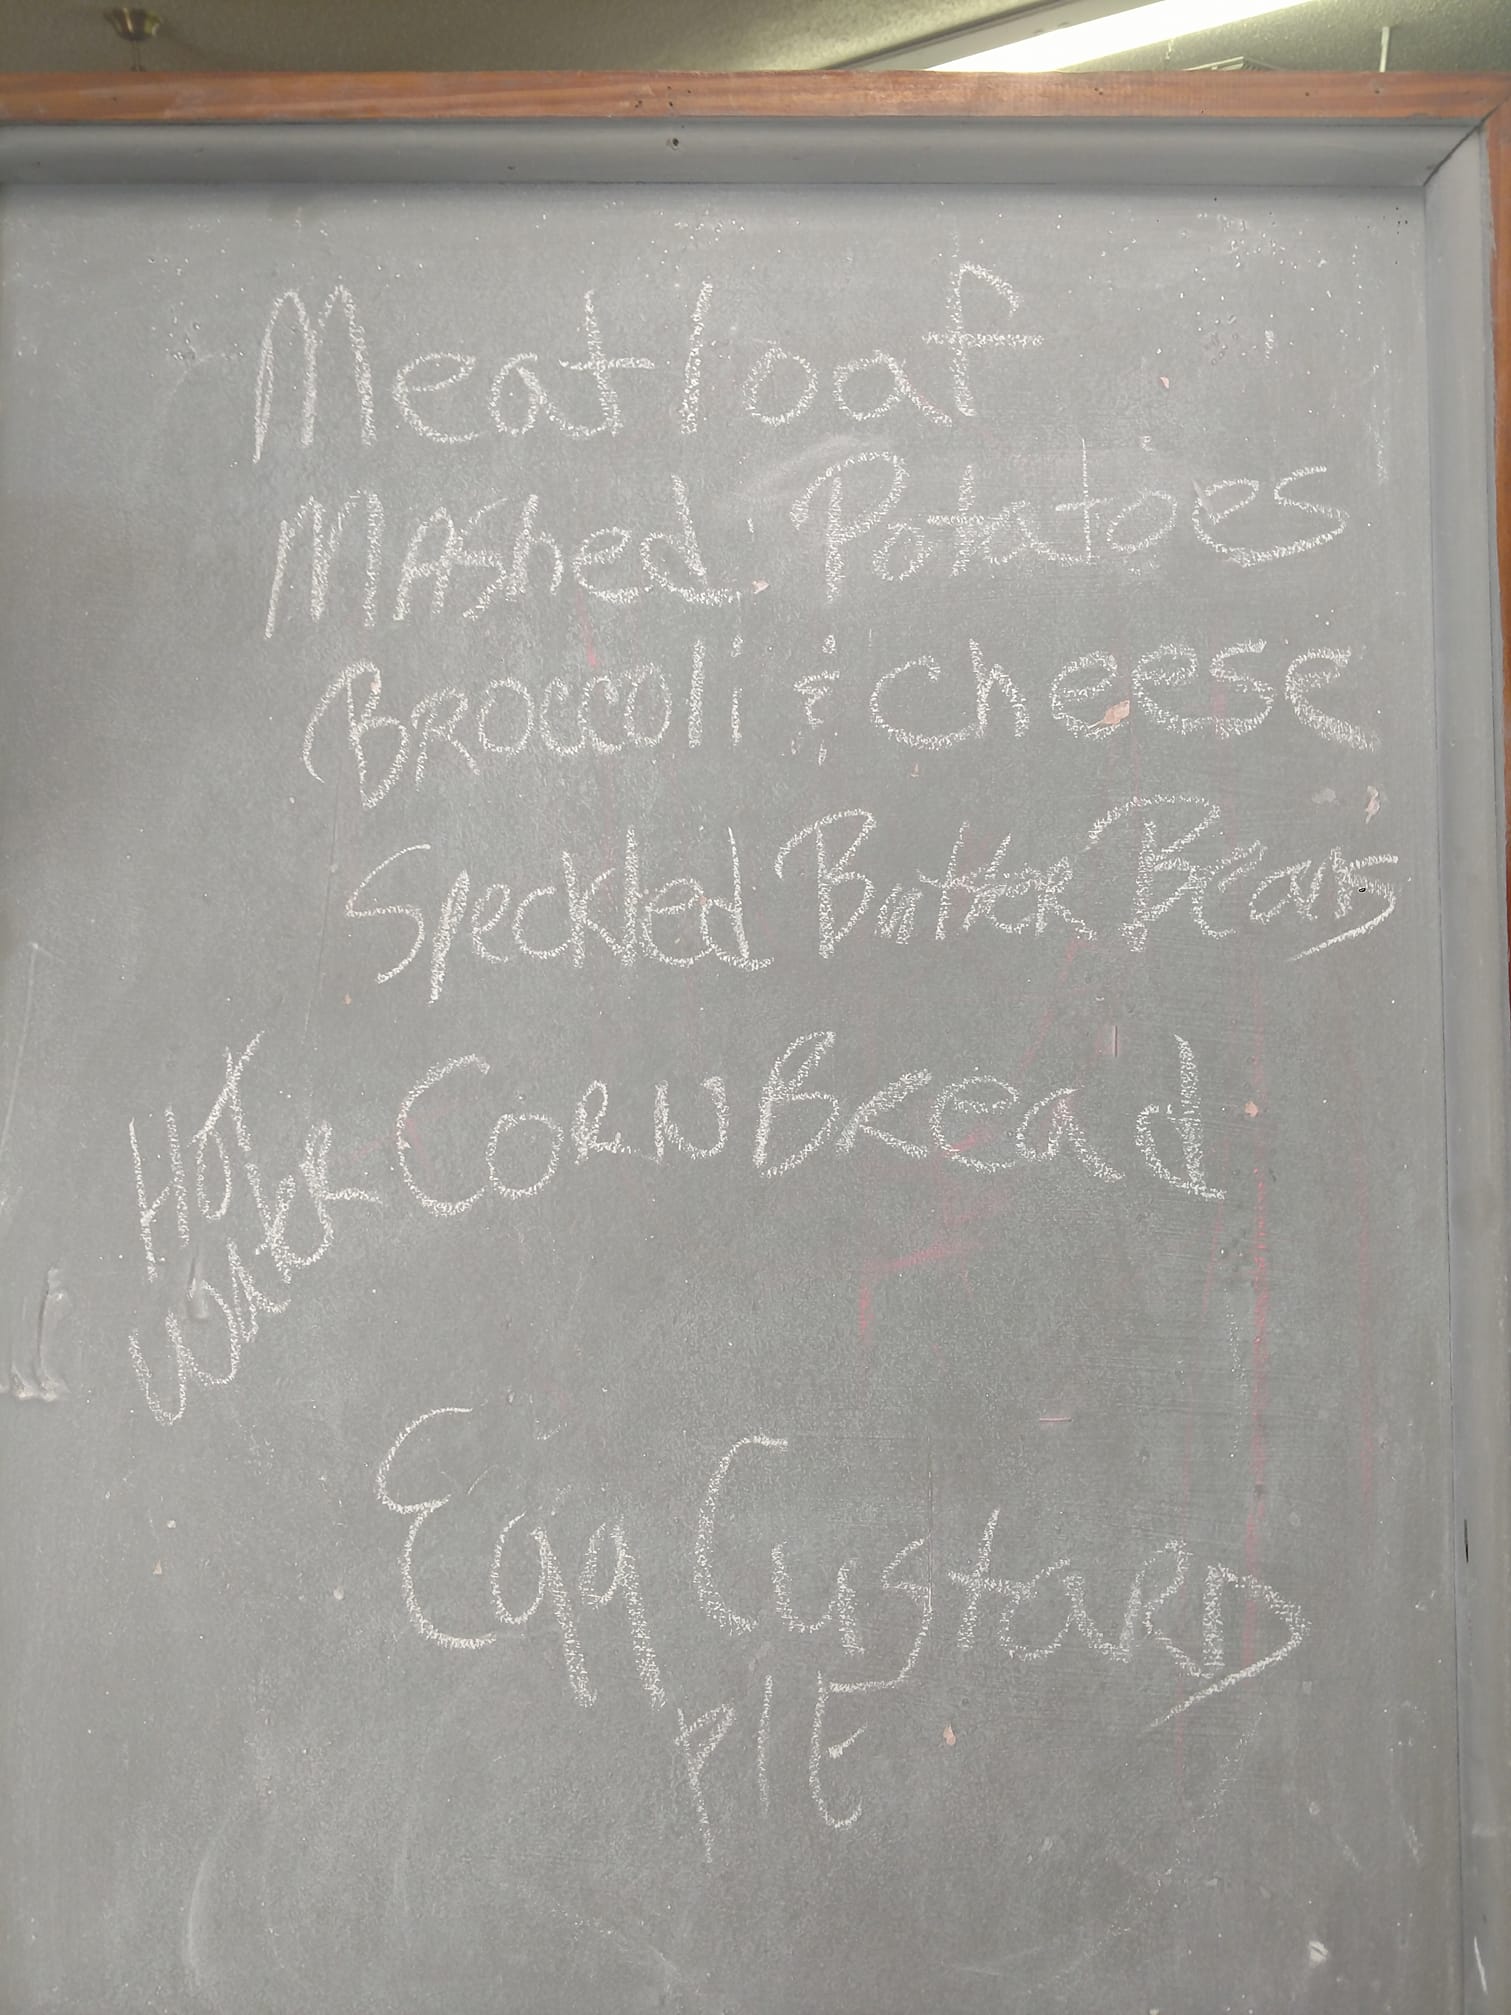 Meatloaf
MAShed Potatoes
BRoccoli & cheese
Speckled Butter Beans
Hot
WateR CoRN BRead
Egg CustaRD
PIE